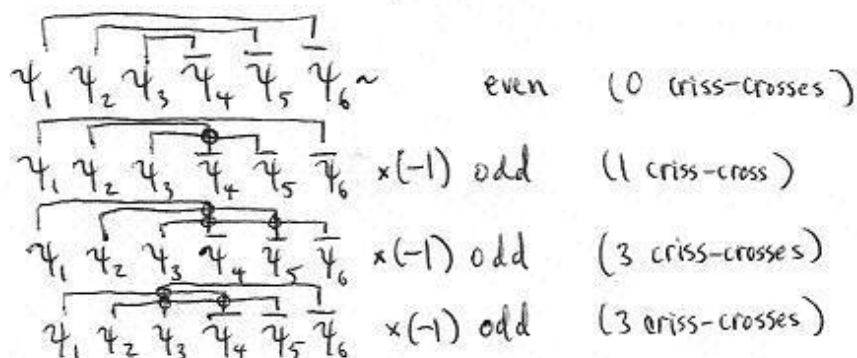 ψ₁ ψ₂ ψ₃ ψ̅₄ ψ̅₅ ψ̅₆ ~ even (0 criss-crosses)
ψ₁ ψ₂ ψ₃ ψ̅₄ ψ̅₅ ψ̅₆ ×(-1) odd (1 criss-cross)
ψ₁ ψ₂ ψ₃ ψ̅₄ ψ̅₅ ψ̅₆ ×(-1) odd (3 criss-crosses)
ψ₁ ψ₂ ψ₃ ψ̅₄ ψ̅₅ ψ̅₆ ×(-1) odd (3 criss-crosses)